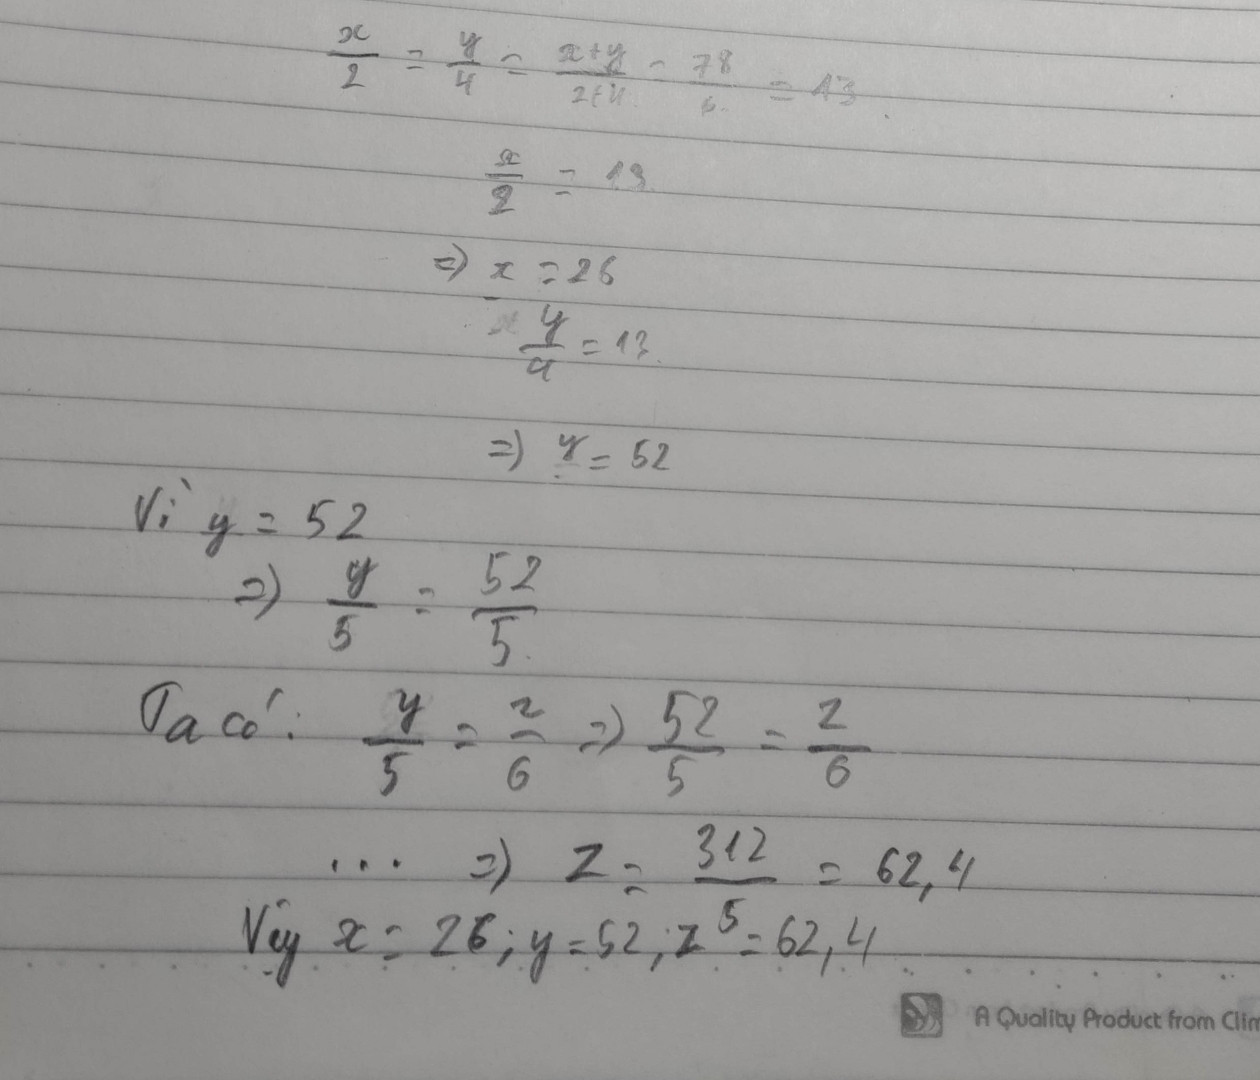 x/2 = y/4 = x+y/2+4 = 78/6 = 13
x/2 = 13
=> x = 26
y/4 = 13
=> y = 52
Vì y = 52
=> y/5 = 52/5
Ta có: y/5 = z/6 => 52/5 = z/6
... => z = 312/5 = 62,4
Vậy x = 26; y = 52; z = 62,4
A Quality Product from Clim